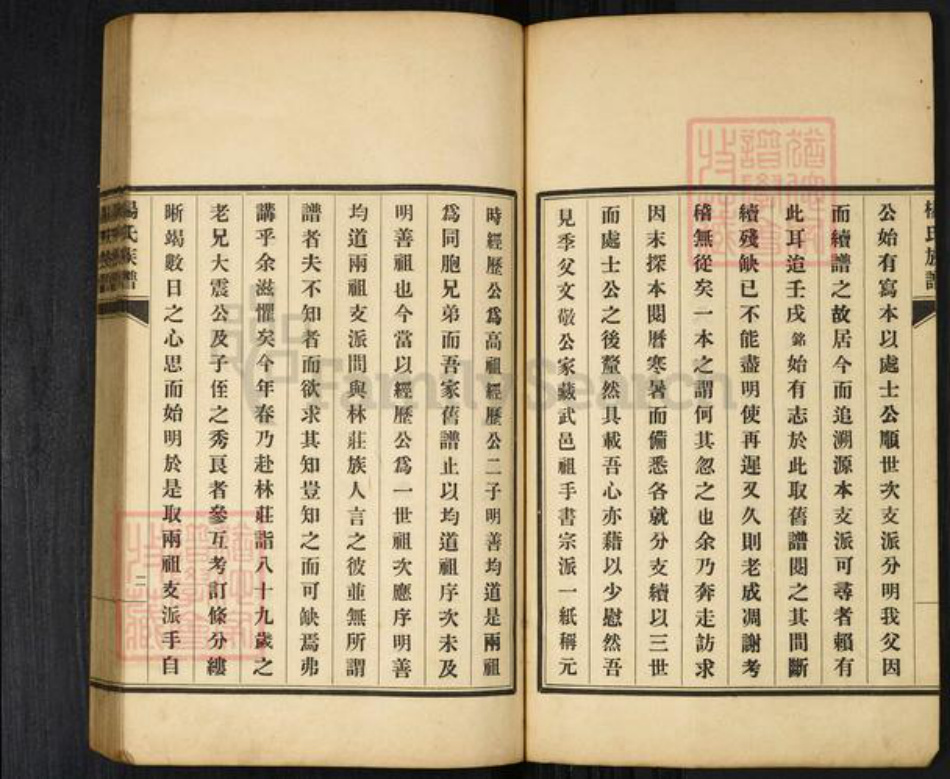 楊氏族譜
公始有寫本以處士公順世次支派分明我父因
而續譜之故居今而追溯源本支派可尋者賴有
此耳迨壬戌銘始有志於此取舊譜閱之其間斷
續殘缺已不能盡明使再遲又久則老成凋謝考
稽無從矣一本之謂何其忽之也余乃奔走訪求
因末探本閱曆寒暑而備悉各就分支續以三世
而處士公之後釐然具載吾心亦藉以少慰然吾
見季父文敬公家藏武邑祖手書宗派一紙稱元
時經歷公爲高祖經歷公二子明善均道是兩祖
爲同胞兄弟而吾家舊譜止以均道祖序次未及
明善祖也今當以經歷公爲一世祖次應序明善
均道兩祖支派間與林莊族人言之彼並無所謂
譜者夫不知者而欲求其知豈知之而可缺焉弗
講乎余滋懼矣今年春乃赴林莊詣八十九歲之
老兄大震公及子侄之秀良者參互考訂條分縷
晰竭數日之心思而始明於是取兩祖支派手自
楊氏族譜
二
FamilySearch